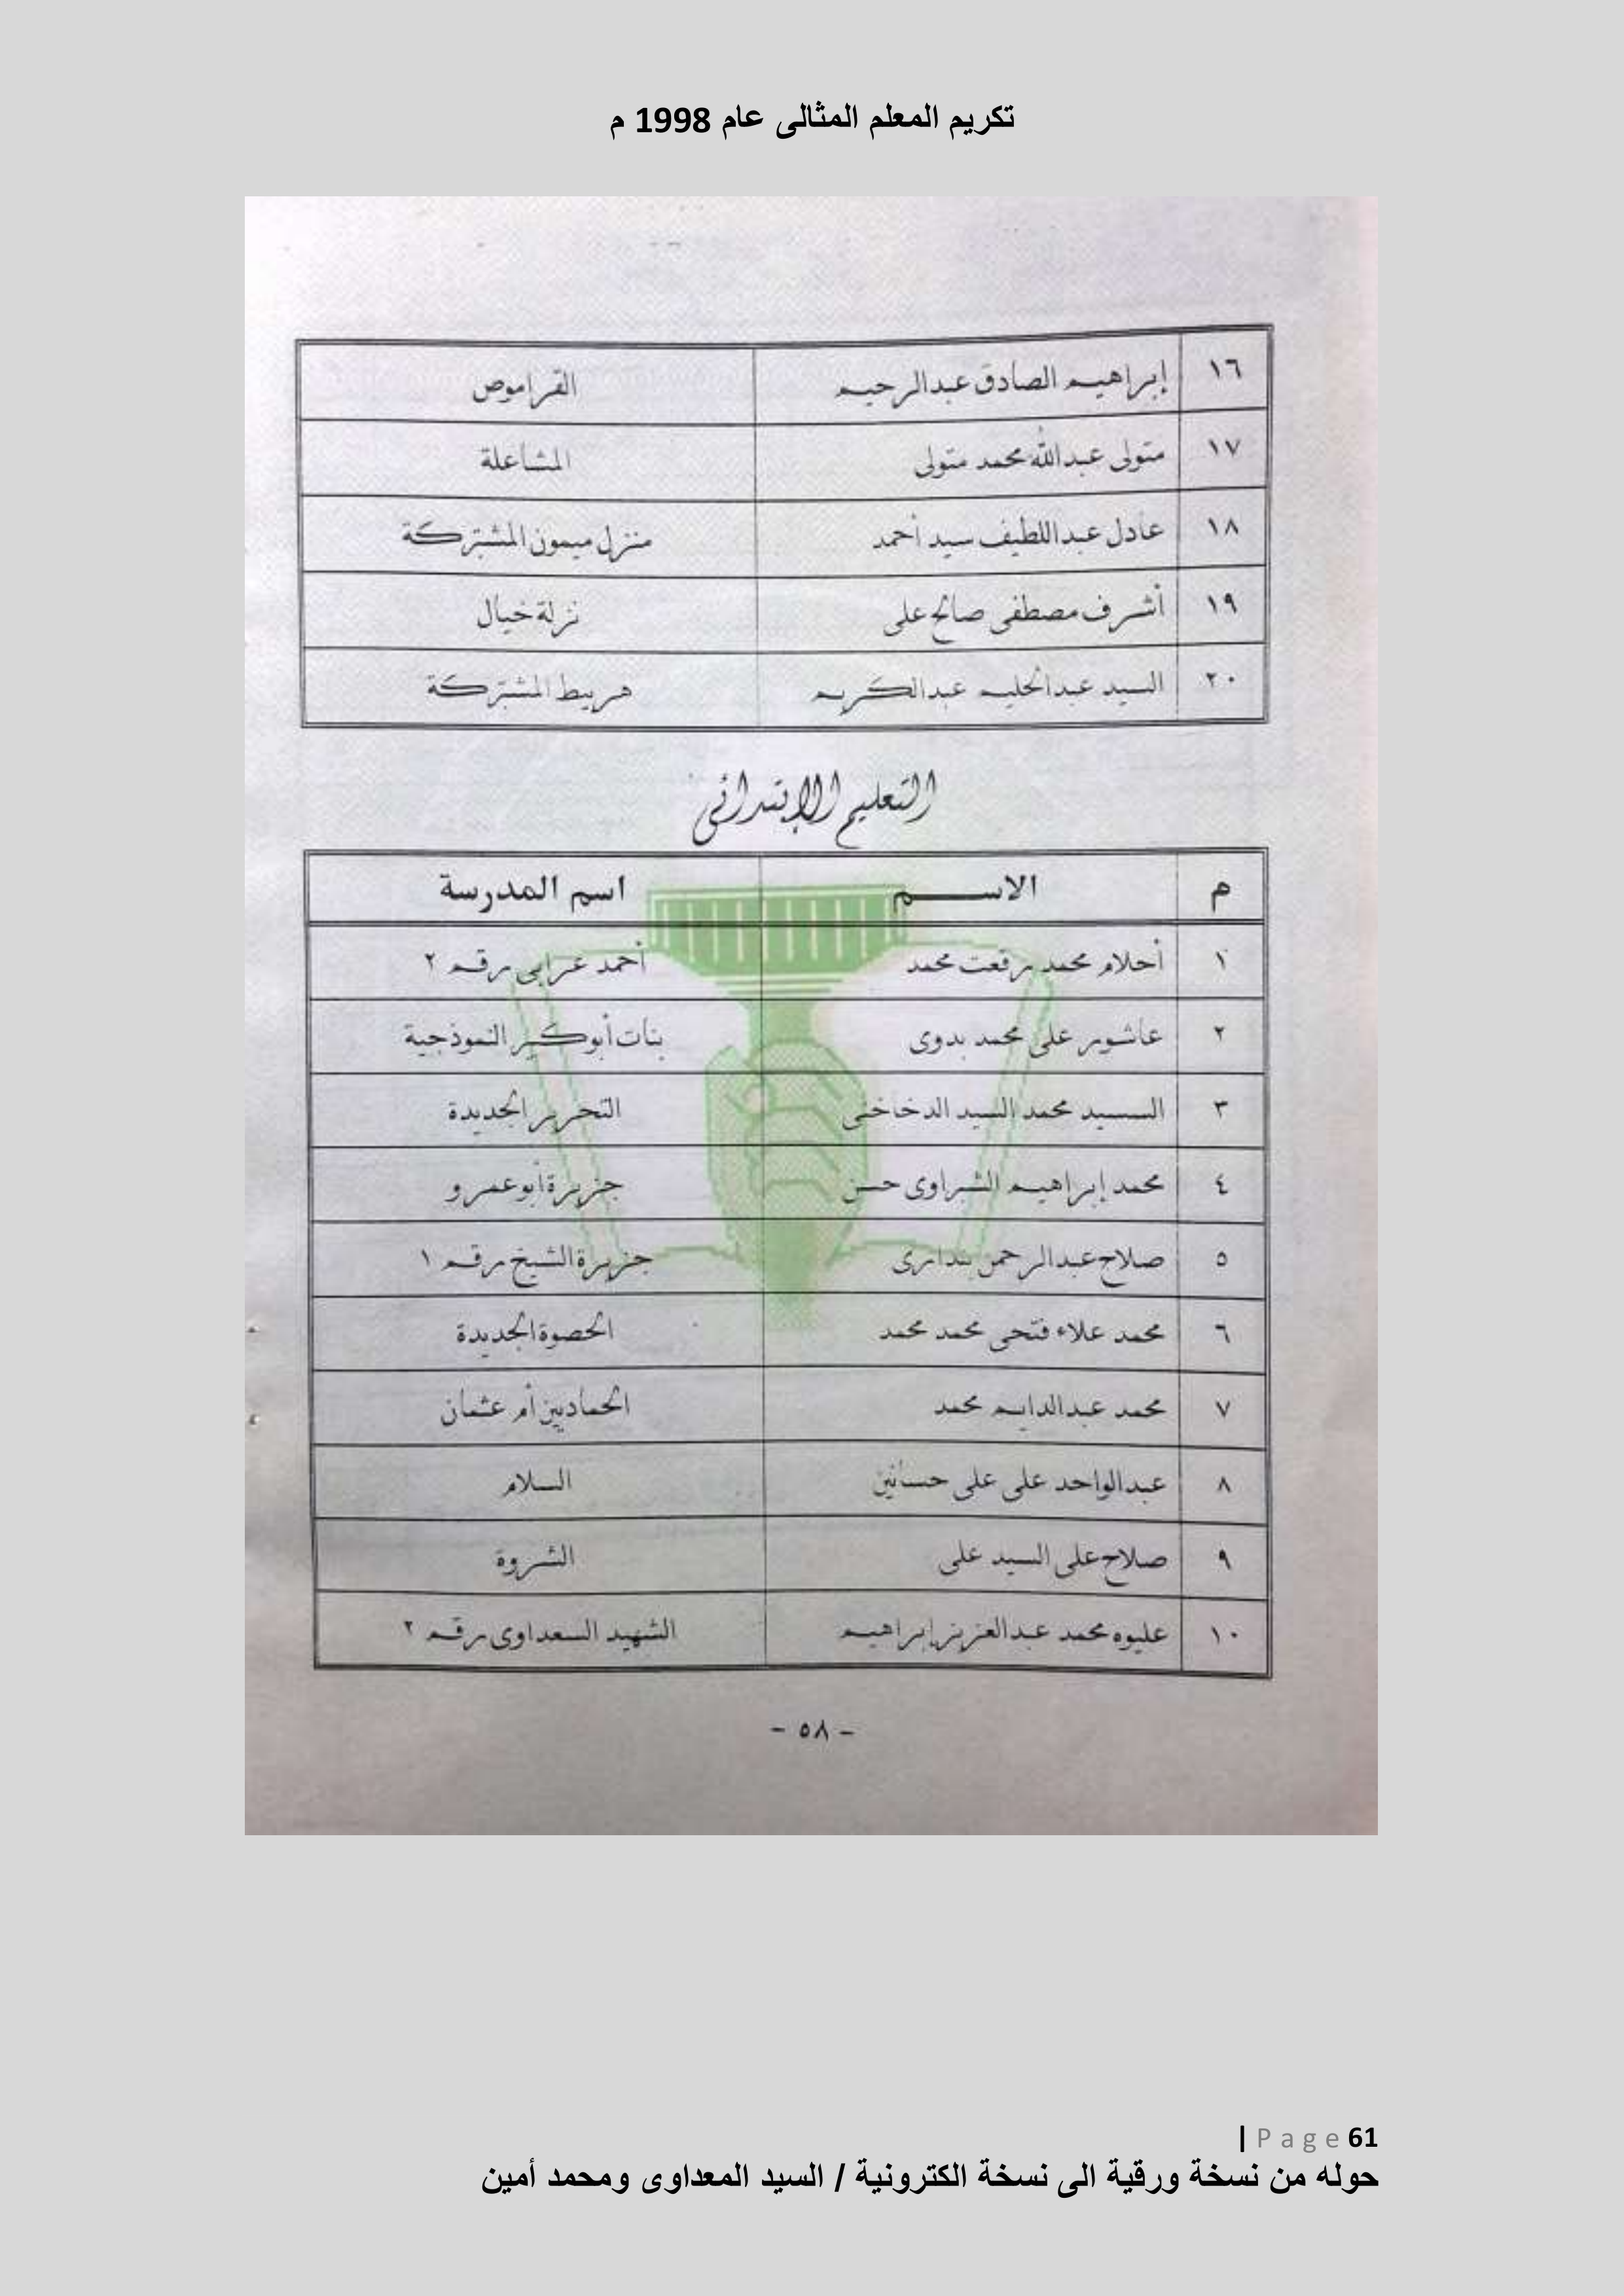 تكريم المعلم المثالى عام 1998 م
١٦ إبراهيم الصادق عبدالرحيم القراموص
١٧ متولى عبدالله محمد متولى المشاعلة
١٨ عادل عبداللطيف سيد أحمد منزل ميمون المشتركة
١٩ أشرف مصطفى صالح على نزلة خيال
٢٠ السيد عبدالحليم عبدالكريم هربيط المشتركة
التعليم الإبتدائى
م الاسم اسم المدرسة
١ أحلام محمد رفعت محمد أحمد عرابى رقم ٢
٢ عاشور على محمد بدوى بنات أبوكبير النموذجية
٣ السيد محمد السيد الدخاخنى التحرير الجديدة
٤ محمد إبراهيم الشبراوى حسن جزيرة أبوعمرو
٥ صلاح عبدالرحمن بندارى جزيرة الشيخ رقم ١
٦ محمد علاء فتحى محمد محمد الحصوة الجديدة
٧ محمد عبدالدايم محمد الحمادين أم عثمان
٨ عبدالواحد على على حسانين السلام
٩ صلاح على السيد على الشروة
١٠ عليوه محمد عبدالعزيز إبراهيم الشهيد السعداوى رقم ٢
- ٥٨ -
61 Page |
حوله من نسخة ورقية الى نسخة الكترونية / السيد المعداوى ومحمد أمين